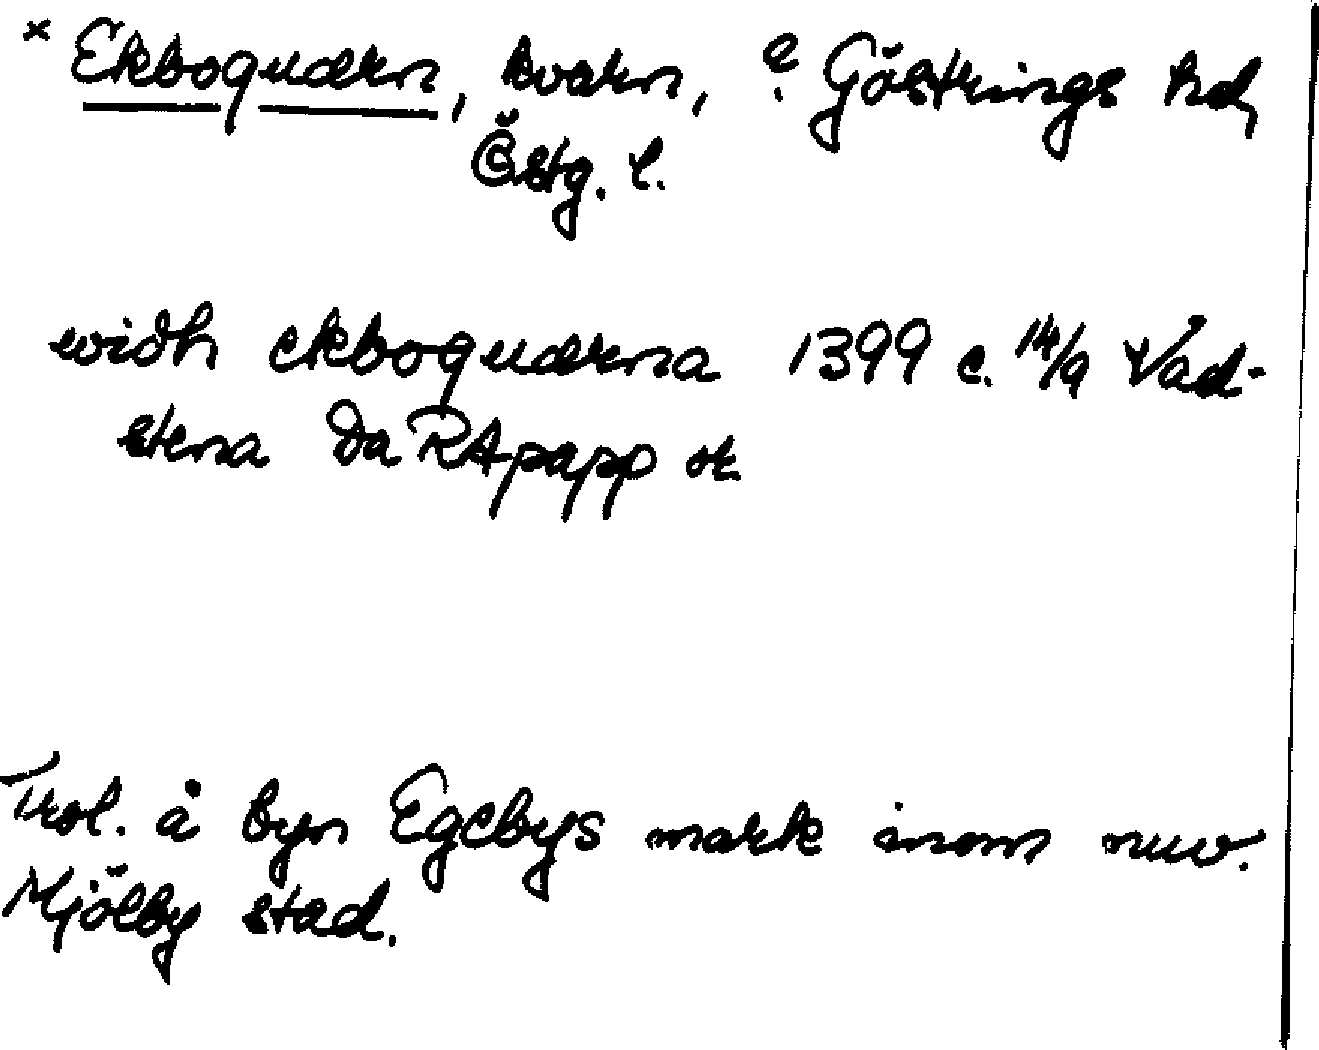 × Ekboquærn, kvarn, ? Göstrings hd,
Östg. l.
widh ekboquærna 1399 c. 14/9 Vad-
stena Da RApapp ok
Trol. å byn Egebys mark inom nuv.
Mjölby stad.